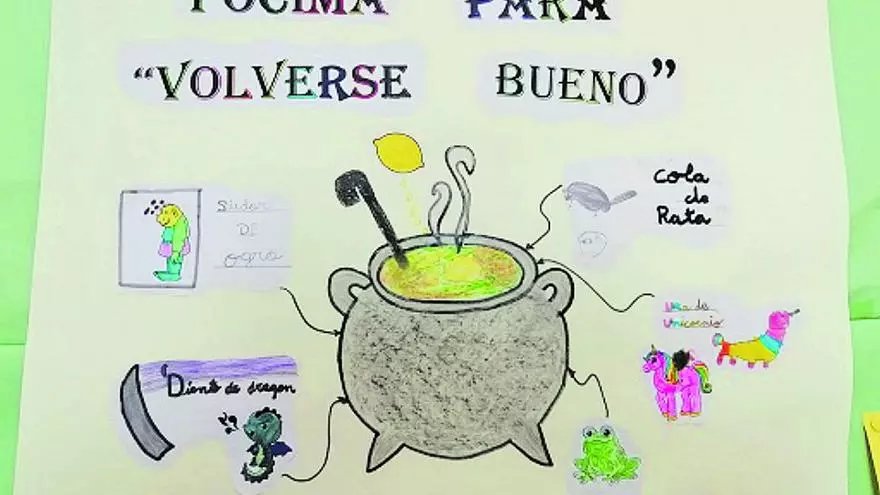 PÓCIMA PARA
“VOLVERSE BUENO”
Sudor
DE
ogro
Cola
de
Rata
uña de
unicornio
Diente de dragon